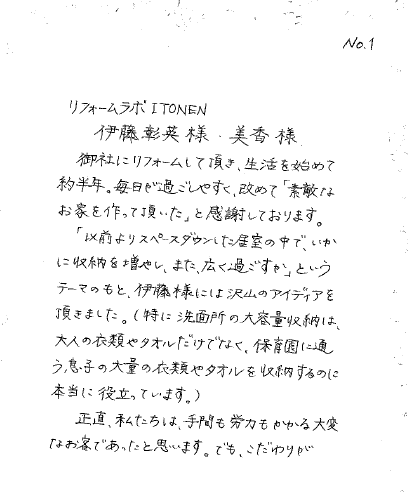 No.1
リフォームラボ ITONEN
伊藤彰英様・美香様
御社にリフォームして頂き、生活を始めて
約半年。毎日が過ごしやすく、改めて「素敵な
お家を作って頂いた」と感謝しております。
「以前よりスペースダウンした居室の中で、いか
に収納を増やし、また、広く過ごすか」という
テーマのもと、伊藤様には沢山のアイディアを
頂きました。(特に洗面所の大容量収納は、
大人の衣類やタオルだけでなく、保育園に通
う息子の大量の衣類やタオルを収納するのに
本当に役立っています。)
正直、私たちは、手間も労力もかかる大変
なお客であったと思います。でも、こだわりが